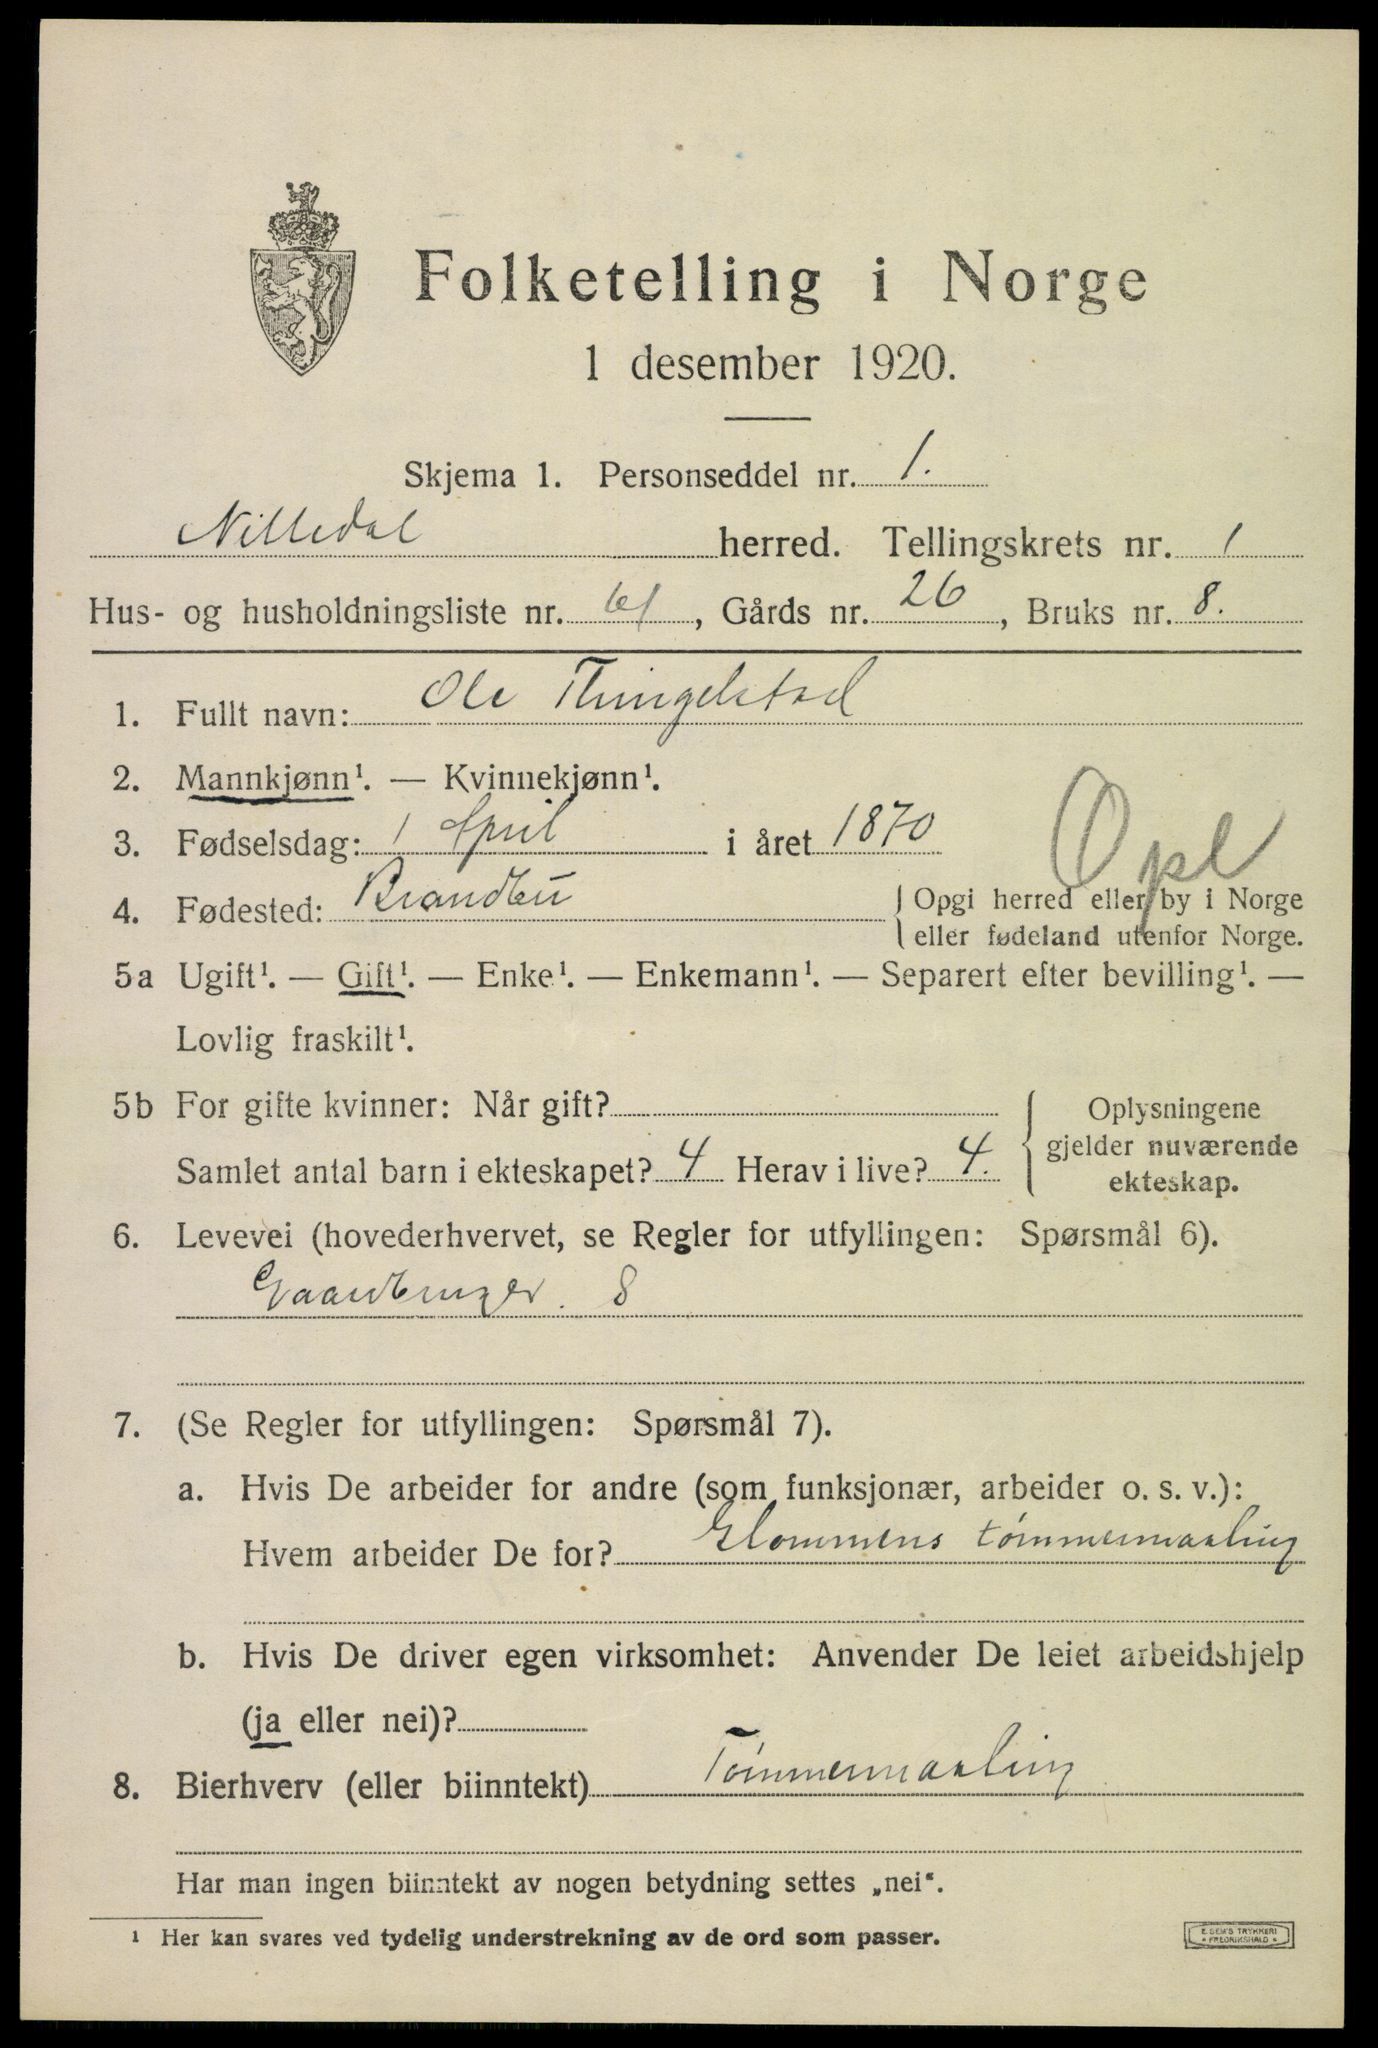 Folketelling i Norge
1 desember 1920.
Skjema 1. Personseddel nr. 1.
Nittedal herred. Tellingskrets nr. 1
Hus- og husholdningsliste nr. 61, Gårds nr. 26, Bruks nr. 8.
1. Fullt navn: Ole Thingelstad
2. Mannkjønn¹. — Kvinnekjønn¹.
3. Fødselsdag: 1 April i året 1870
Opl
4. Fødested: Brandbu { Opgi herred eller by i Norge
eller fødeland utenfor Norge.
5a Ugift¹. — Gift¹. — Enke¹. — Enkemann¹. — Separert efter bevilling¹. —
Lovlig fraskilt¹.
5b For gifte kvinner: Når gift?
Samlet antal barn i ekteskapet? 4 Herav i live? 4.
{ Oplysningene
gjelder nuværende
ekteskap.
6. Levevei (hovederhvervet, se Regler for utfyllingen: Spørsmål 6).
Gaardbruger. S
7. (Se Regler for utfyllingen: Spørsmål 7).
a. Hvis De arbeider for andre (som funksjonær, arbeider o. s. v.):
Hvem arbeider De for? Glommens tømmermaaling
b. Hvis De driver egen virksomhet: Anvender De leiet arbeidshjelp
(ja eller nei)?
8. Bierhverv (eller biinntekt) Tømmermaaling
Har man ingen biinntekt av nogen betydning settes „nei“.
¹ Her kan svares ved tydelig understrekning av de ord som passer.
E. SEM'S TRYKKERI
* FREDRIKSHALD *